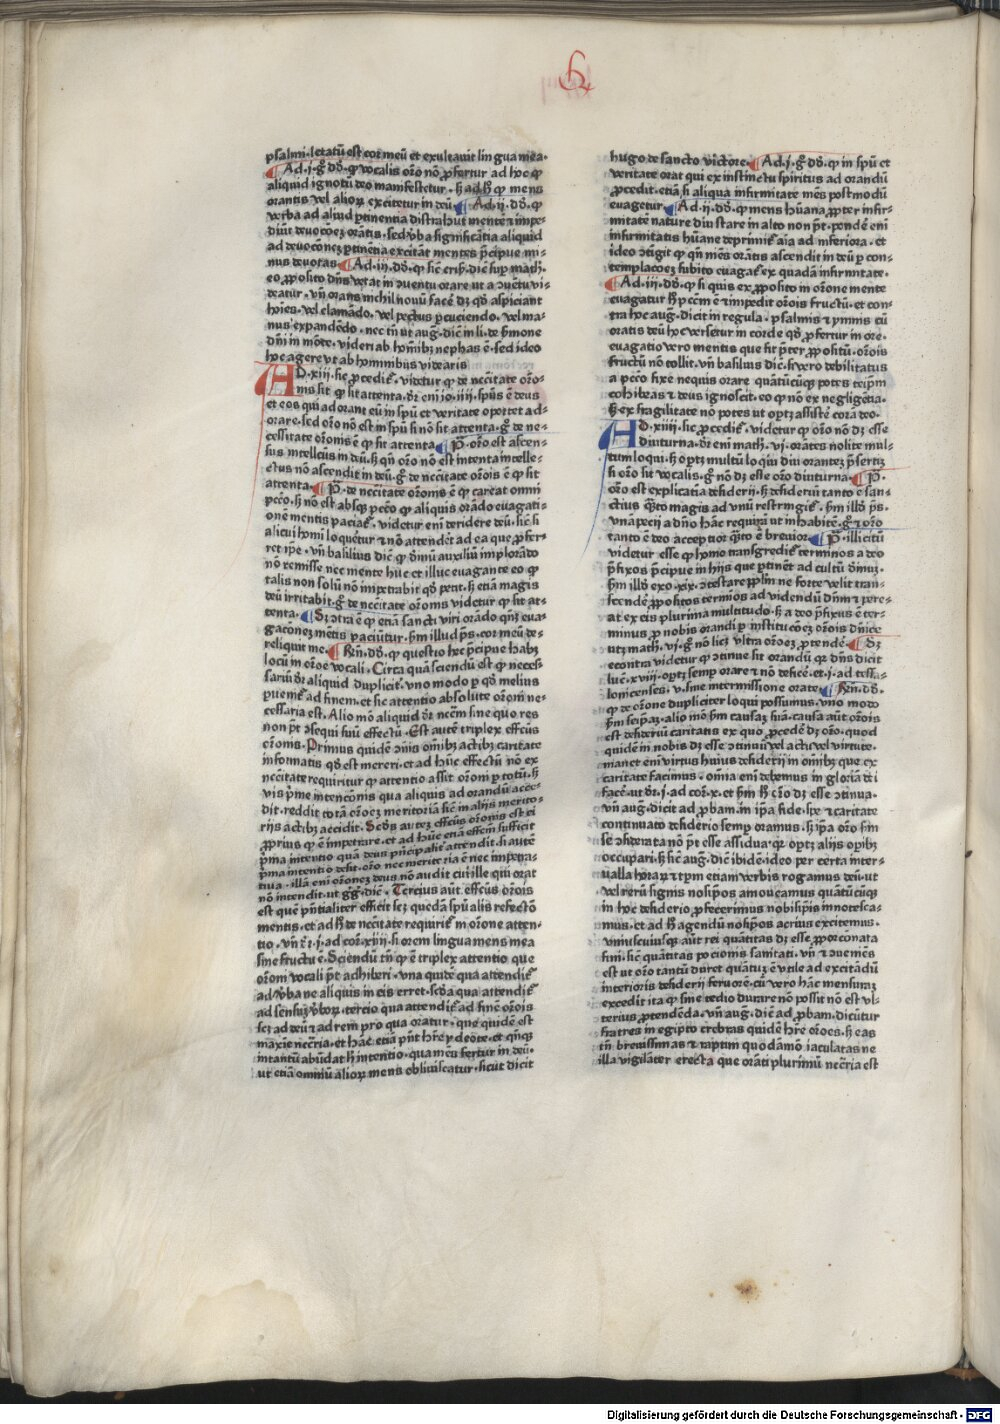 psalmi·letatū est cor meū et exultauit lingua mea·
Ad·j·gͦ dd̄·ꝙ vocalis or̄o nō ꝓfertur ad hoc ꝙ
aliquid ignotū deo manifestetur·ſꝫ ad hͦ ꝙ mens
orantis vel alioꝝ excitetur in deū Ad·ij·dd̄·ꝙ
verba ad aliud ꝑtinentia distrahūt mentē ⁊ impe-
diūt deuocōeꝫ orātis·sed v̓ba significātia aliquid
ad deuocōneꝫ ꝑtinētia excitāt mentes p̄cipue mi-
nus deuotas Ad·iij·dd̄·
eo ꝓposito dn̄s vetat in ꝯuentu orare ut a ꝯuētu vi-
deatur·vn̄ orans nichil nouū facē dꝫ qd̄ aspiciant
hoīes·vel clamādo·vel pectus ꝑcuciendo·vel ma-
nus expandēdo·nec tn̄ ut aug·dic̄ in li·de s̓mone
dn̄i in mōte·videri ab hoīibꝫ nephas ē·sed ideo
hoc agere ut ab hominibus videaris
AD·xiij·sic ꝓcedit̄·videtur ꝙ de nc̄citate or̄o-
nis sit ꝙ sit attenta·dr̄ eni io·iiij·spūs ē deus
et eos qui adorant eū in spū et veritate oportet ad-
orare·sed or̄o nō est in spū si nō sit attenta·gͦ de ne-
cessitate or̄onis ē ꝙ sit attenta P̄·or̄o est ascen-
sus intellectus in deū·sꝫ qn̄ or̄o nō est intenta intelle-
ctus nō ascendit in deū·gͦ de nc̄citate or̄ois ē ꝙ sit
attenta· P̄·de nc̄citate or̄onis ē ꝙ careat omni
pcc̄o·sꝫ nō est absqꝫ pcc̄o ꝙ aliquis orādo euagati-
onē mentis paciat̄·videtur eni deridere deū·sic̄ si
alicui homī loquetur ⁊ nō attenderet ad ea que ꝓfer-
ret ip̄e·vn̄ basilius dic̄ ꝙ diuinū auxiliū implorādo
nō remisse nec mente huc et illuc euagante eo ꝙ
talis non solū nō impetrabit qd̄ petit·sꝫ etiā magis
deū irritabit·gͦ de nc̄citate or̄onis videtur ꝙ sit at-
tenta· Sꝫ ꝯtra ē ꝙ etiā sancti viri orādo qn̄qꝫ eua-
gacōneꝫ mētis paciūtur·ẜm illud pͣs·cor meū de-
reliquit me· Rn̄·dd̄·ꝙ questio hec p̄cipue habꝫ
locū in or̄oe vocali·Circa quā sciendū est ꝙ necesˢ-
sariū dr̄ aliquid dupliciter·vno modo ꝑ qd̄ melius
ꝑuenit̄ ad finem·et sic attentio absolute or̄oni ne-
cessaria est·Alio mō aliquid dr̄ nc̄cm sine quo res
non pt̄ ꝯsequi suū effectū·Est autē triplex effectus
or̄onis·Primus quidē ꝯnis om̄ibꝫ actibꝫ caritate
informatis qd̄ est mereri·et ad hūc effectū nō ex
nc̄citate requiritur ꝙ attentio assit or̄oni ꝑ totū·sꝫ
vis p̄me intencōnis qua aliquis ad orandū acce-
dit·reddit totā or̄oeꝫ meritoriā sic̄ in alijs merito-
rijs actibꝫ accidit·Scd̄s autꝫ effectus or̄onis est ei
ꝓprius ꝙ ē impetrare·et ad hūc etiā effcm̄ sufficit
p̄ma intentio quā deus p̄ncipalit̄ attendit·si autē
p̄ma intentio desit·or̄o nec meritoria ē nec impetra-
tiua·illā eni or̄oneꝫ deus nō audit cui ille qui orat
nō intendit·ut gg̓·dic̄·Tercius aūt effectus or̄ois
est quē pn̄tialiter efficit scꝫ quedā spūalis refectō
mentis·et ad hͦ de nc̄citate requirit̄ in or̄one atten-
tio·vn̄ ·j·ad cor·xiiij·si orem lingua mens mea
sine fructu ē·Sciendū tn̄ ꝙ ē triplex attentio que
or̄oni vocali pt̄ adhiberi·vna quidē qua attendit̄
ad v̓ba ne aliquis in eis erret·scd̄a qua attendit̄
ad sensuꝫ v̓boꝝ·tercio qua attendit̄ ad finē or̄ois
scꝫ ad deū ⁊ ad rem pro qua oratur·que quidē est
maxīe nec̄ria·et hāc etiā pn̄t hr̄e ydeote·et qn̄qꝫ
intantū abūdat hͦ intentio·qua mēs fertur in deū·
ut etiā omniū alioꝝ mens obliuiscatur·sicut dicit
hugo de sancto victore· Ad·j·gͦ dd̄·ꝙ in spū et
veritate orat qui ex instinctu spiritus ad orandū
ꝓcedit·etiā si aliqua infirmitate mēs postmodū
euagetur Ad·ij·dd̄·ꝙ mens hūana ꝓpter infir-
mitatē nature diu stare in alto non pt̄·pondē eni
infirmitatis hūane deprimit̄ aīa ad inferiora·et
ideo ꝯtigit ꝙ qn̄ mēs orātis ascendit in deū ꝑ con-
templacōeꝫ subito euagat̄ ex quadā infirmitate·
Ad·iij·dd̄·ꝙ si quis ex ꝓposito in or̄one mente
euagatur hͦ pcc̄m ē ⁊ impedit or̄ois fructū·et con-
tra hoc aug·dicit in regula·psalmis ⁊ ymnis cū
oratis deū hoc versetur in corde qd̄ ꝓfertur in ore·
euagatio vero mentis que fit p̄ter ꝓpositū·or̄ois
fructū nō tollit·vn̄ basilius dic̄·si vero debilitatus
a pcc̄o fixe nequis orare quātūcūqꝫ potes teip̄m
cohibeas ⁊ deus ignoscit·eo ꝙ nō ex negligētia·
sꝫ ex fragilitate nō potes ut oꝑtꝫ assistē corā deo·
AD·xiiij·sic ꝓcedit̄·videtur ꝙ or̄o nō dꝫ esse
diuturna·dr̄ eni math·vj·orātes nolite mul-
tum loqui·sꝫ oꝑtꝫ multū loqui diu oranteꝫ p̄sertī
si or̄o sit vocalis·gͦ nō dꝫ esse or̄o diuturna· P̄·
or̄o est explicatia desiderij·sꝫ desideriū tanto ē san-
ctius quāto magis ad vnū restringit̄·ẜm illd̄ pͣs·
vnā pecij a dn̄o hāc requirā ut inhabitē·gͦ ⁊ or̄o
tanto ē deo acceptior quāto ē breuior P̄·illicitū
videtur esse ꝙ homo transgredit̄ terminos a deo
p̄fixos p̄cipue in hijs que ꝑtinēt ad cultū diuinū·
ẜm illd̄ exo·xix·ꝯtestare ꝓplm̄ ne forte velit tran-
scendē ꝓpositos termīos ad videndū dn̄m ⁊ pere-
at ex eis plurima multitudo·sꝫ a deo p̄fixus ē ter-
minus ꝓ nobis orandi ꝑ institucōeꝫ or̄ois dn̄ice
utꝫ math·vj·gͦ nō licꝫ vltra or̄oeꝫ ꝓtendē· Sꝫ
econtra videtur ꝙ ꝯtinue sit orandū qꝛ dn̄s dicit
luc̄·xviij·oꝑtꝫ semꝑ orare ⁊ nō deficē·et·j·ad tessa-
lonicenses·v·sine intermissione orate Rn̄·dd̄·
ꝙ de or̄one dupliciter loqui possumus·vno modo
ẜm seipāꝫ·alio mō ẜm causaꝫ suā·causa aūt or̄ois
est desideriū caritatis ex quo ꝓcedē dꝫ or̄o·quod
quidē in nobis dꝫ esse ꝯtinuū vel actu vel virtute·
manet eni virtus huius desiderij in om̄ibꝫ que ex
caritate facimus·om̄ia eni debemus in gloriā dei
facē·ut dr̄·j·ad cor·x·et ẜm hͦ or̄o dꝫ esse ꝯtinua·
vn̄ aug·dicit ad ꝓbam·in ip̄a fide·spe ⁊ caritate
continuato desiderio semꝑ oramus·sꝫ ip̄a or̄o ẜm
se ꝯsiderata nō pt̄ esse assidua·qꝛ oꝑtꝫ alijs oꝑibꝫ
occupari·sꝫ sic̄ aug·dic̄ ibidē·ideo per certa inter-
ualla horaꝝ ⁊ tꝑm etiam verbis rogamus deū·ut
vel rerū signis nosip̄os amoueamus quātūcūqꝫ
in hoc desiderio ꝓfecerimus nobisip̄is innotesca-
mus·et ad hͦ agendū nosip̄os acrius excitemus·
vniuscuiusqꝫ aūt rei quātitas dꝫ esse ꝓporc̄onata
fini·sic̄ quātitas pocionis sanitati·vn̄ ⁊ ꝯueniēs
est ut or̄o tantū duret quātuꝫ ē vtile ad excitādū
interioris desiderij feruorē·cū vero hāc mensurā
excedit ita ꝙ sine tedio durare nō possit nō est vl-
terius ꝓtendēda·vn̄ aug·dic̄ ad ꝓbam·dicūtur
fratres in egipto crebras quidē hr̄e or̄oes·sꝫ eas
tn̄ breuissimas ⁊ raptim quodāmō iaculatas ne
illa vigilāter erecta que orāti plurimū nec̄ria est
Digitalisierung gefördert durch die Deutsche Forschungsgemeinschaft - DFG